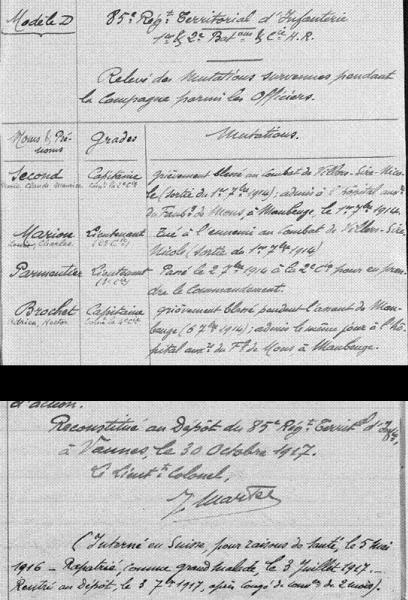 Modèle D
85e Régt Territorial d'Infanterie
1er & 2e Batons & Cie H.R.
Relevé des Mutations survenues pendant
la Campagne parmi les Officiers.
Noms & Pré-
noms
Grades
Mutations.
Second
Claude Maurice
Capitaine
grièvement blessé au combat de Villers-Sire-Nico-
le (sortie du 1er 7bre 1914); admis à l'hôpital auxre
du Faubg de Mons à Maubeuge, le 1er 7bre 1914.
Marion
Charles
Lieutenant
Tué à l'ennemi au Combat de Villers-Sire-
Nicole (Sortie du 1er 7bre 1914)
Parmentier
Lieutenant
Passé le 2 7bre 1914 à la 2e Cie pour en pren-
dre le Commandement.
Brochet
Hector
Capitaine
grièvement blessé pendant l'assaut de Mau-
beuge (6 7bre 1914); admis le même jour à l'hô-
pital auxre du Fg de Mons à Maubeuge.
d'action.
Reconstitué au Dépôt du 85e Régt Territal d'Infie,
à Vannes, le 30 Octobre 1917.
Le Lieutt Colonel,
J. Martel
(Interné en Suisse, pour raisons de santé, le 5 Mai
1916 - Rapatrié, comme grand malade le 3 Juillet 1917 -
Rentré au Dépôt, le 3 7bre 1917, après congé de conv. de 2 mois).